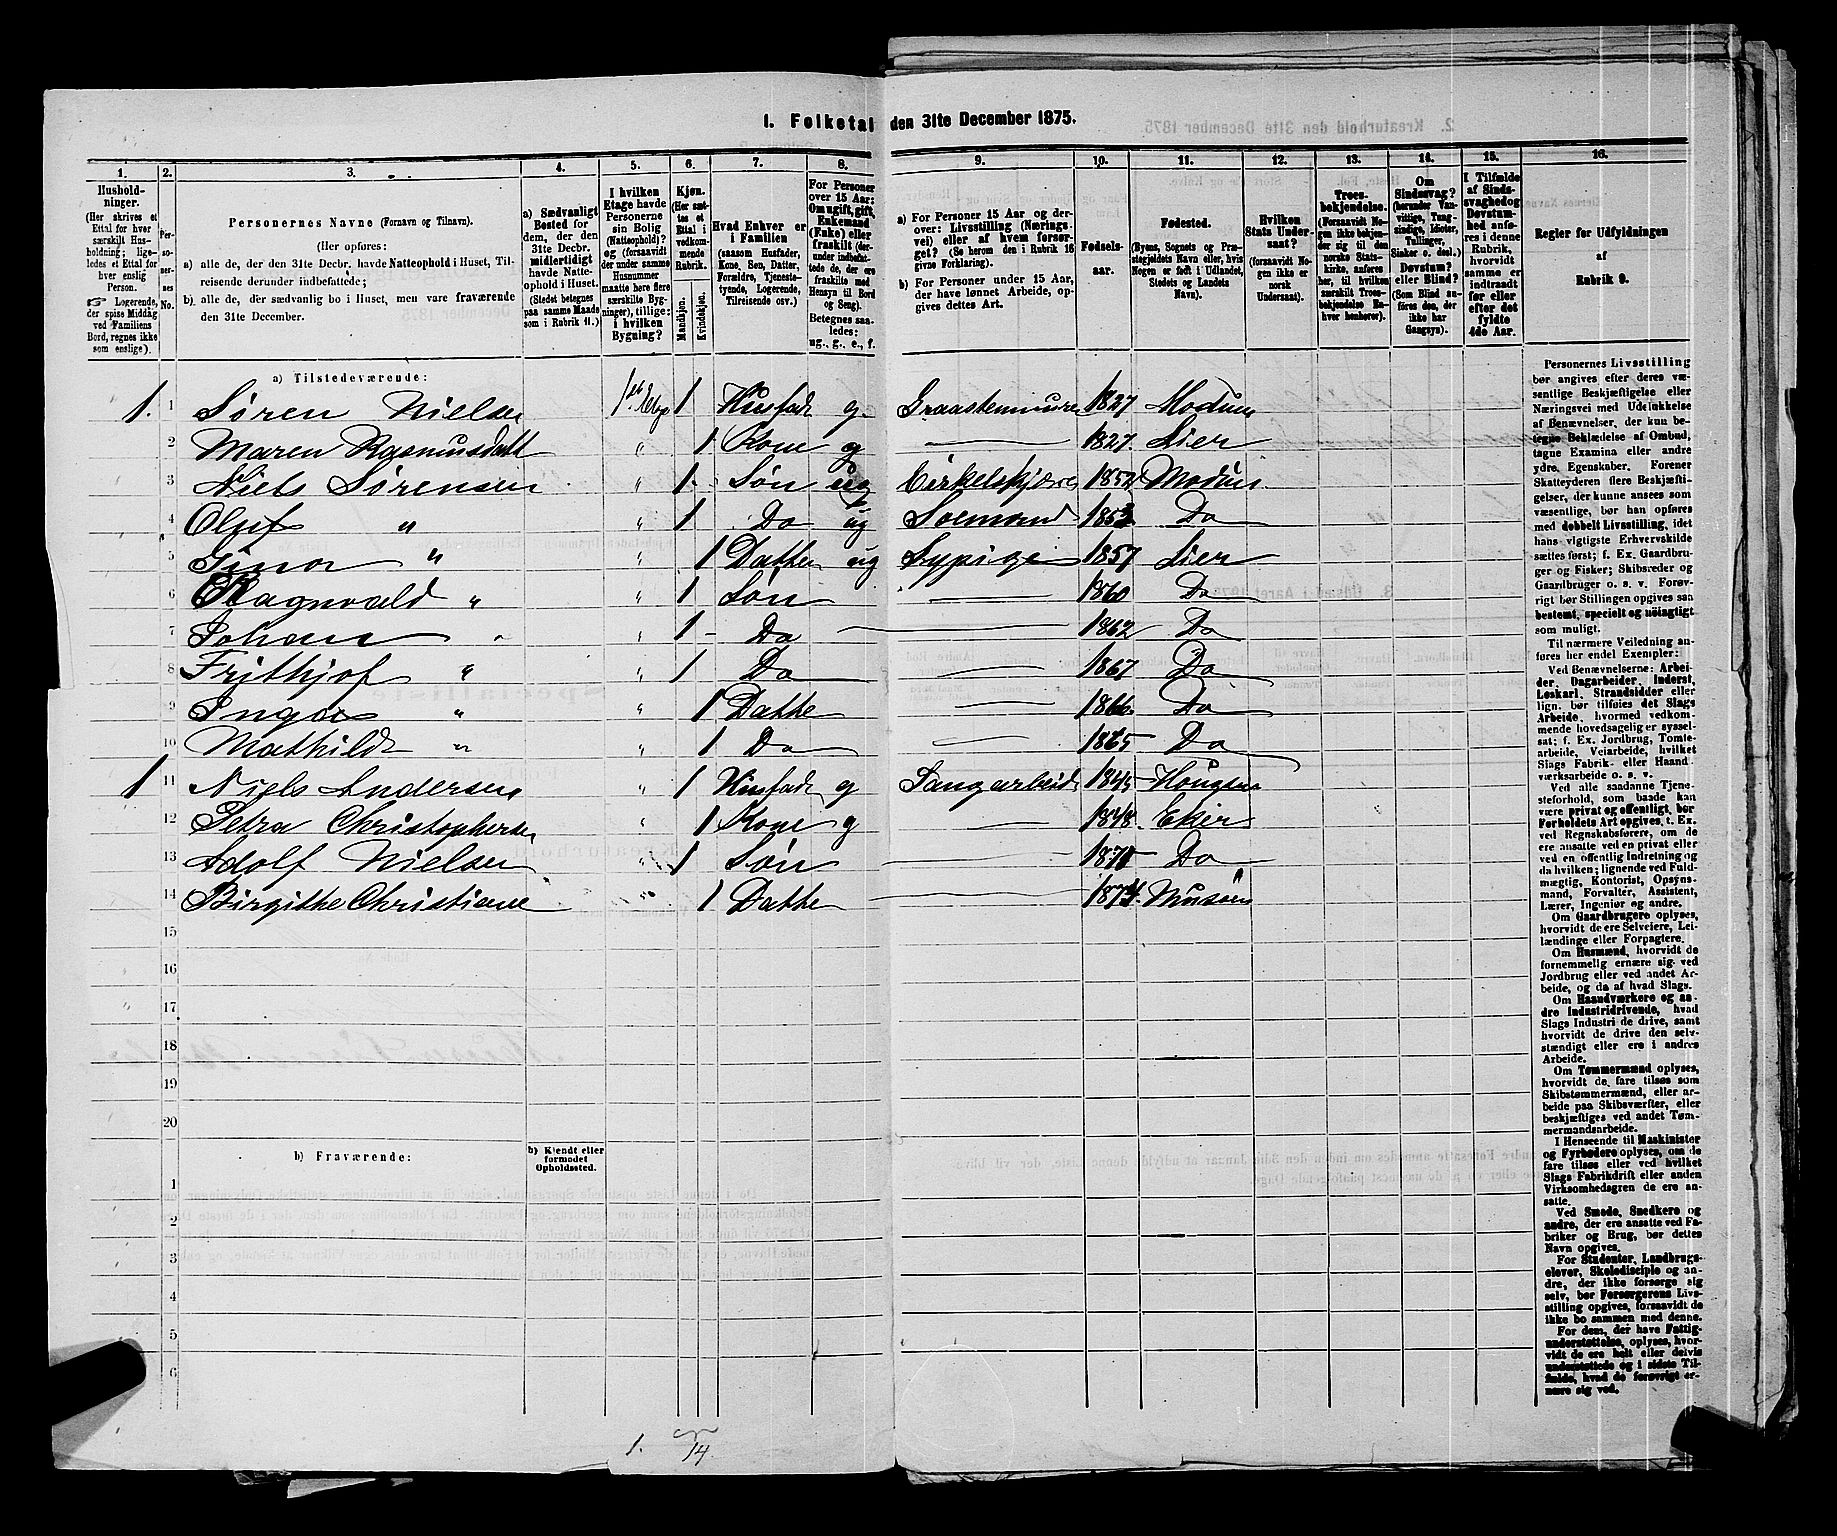 1. Folketal den 31te December 1875.
1. 2. 3. 4. 5. 6. 7. 8. 9. 10. 11. 12. 13. 14. 15. 16.
Hushold-
ninger.
(Her skrives et
Ettal for hver
særskilt Hus-
holdning; lige-
ledes et Ettal for
hver enslig
Person.
☞ Logerende,
der spise Middag
ved Familiens
Bord, regnes ikke
som enslige).
Per-
so-
ner-
nes
No.
Personernes Navne (Fornavn og Tilnavn).
(Her opføres:
a) alle de, der den 31te Decbr. havde Natteophold i Huset, Til-
reisende derunder indbefattede;
b) alle de, der sædvanlig bo i Huset, men vare fraværende
den 31te December.
a) Sædvanligt
Bosted for
dem, der den
31te Decbr.
midlertidigt
havde Natte-
ophold i Huset.
(Stedet betegnes
paa samme Maade
som i Rubrik 11.)
I hvilken
Etage havde
Personerne
sin Bolig
(Natteophold)?
(forsaavidt
der under samme
Husnummer
maatte høre flere
særskilte Byg-
ninger), tillige:
i hvilken
Bygning?
Kjøn.
(Her sæt-
tes et
Ettal i
vedkom-
mende
Rubrik.
Mandkjøn.
Kvindekjøn.
Hvad Enhver er
i Familien
(saasom Husfader,
Kone, Søn, Datter,
Forældre, Tjeneste-
tyende, Logerende,
Tilreisende osv.)
For Personer
over 15 Aar:
Om ugift, gift,
Enkemand
(Enke) eller
fraskilt (der-
under indbefat-
tede de, der ere
fraskilte med
Hensyn til Bord
og Seng).
Betegnes saa-
ledes:
ug., g., e., f.
a) For Personer 15 Aar og der-
over: Livsstilling (Nærings-
vei) eller af hvem forsør-
get? (Se herom den i Rubrik 16
givne Forklaring).
b) For Personer under 15 Aar,
der have lønnet Arbeide, op-
gives dettes Art.
Fødsels-
aar.
Fødested.
(Byens, Sognets og Præ-
stegjeldets Navn eller, hvis
Nogen er født i Udlandet,
Stedets og Landets
Navn).
Hvilken
Stats Under-
saat?
(forsaavidt No-
gen ikke er
norsk
Undersaat).
Troes-
bekjendelse.
(Forsaavidt No-
gen ikke bekjen-
der sig til den
norske Stats-
kirke, anføres
her, til hvilken
særskilt Troes-
bekjendelse En-
hver henhører).
Om
Sindssvag?
(herunder Van-
vittige, Tung-
sindige, Idioter,
Tullinger,
Sinker o. desl.)
Døvstum?
eller Blind?
(Som Blind an-
føres den, der
ikke har
Gangsyn).
I Tilfælde
af Sinds-
svaghed og
Døvstum-
hed anfø-
res i denne
Rubrik,
hvorvidt
samme er
indtraadt
før eller
efter det
fyldte
4de Aar.
Regler for Udfyldningen
af
Rubrik 9.
a) Tilstedeværende:
1. 1 Søren Nielsen 1st Etage 1 Husfader g. Graastensmurer 1827 Modum
2 Maren Rasmusdatt " 1 Kone g — 1827. Lier
3 Niels Sørensen " 1. Søn ug Cirkelskjærer 1852 Modum
4 Oluf " " 1 Do ug Soemand 1853 Do
5 Inor " " 1 Datter ug Sypige 1857 Lier
6 Ragnvald " " 1 Søn — 1860 Do
7 Johan " " 1 Do — 1862 Do
8 Frithjof " " 1 Do — 1867 Do
9 Inga " " 1 Datte — 1866. Do
10 Mathilde " " 1 Do — 1865 Do
1 11 Niels Andersen " 1 Husfader g Saugarbeider 1845 Hougsun
12 Petra Christophersen " 1 Kone g — 1848. Eker
13 Adolf Nielsen " 1 Søn — 1871 Do
14 Birgithe Christiane " 1 Datte — 1874.
15
16
17
18
19
20
b) Fraværende:
b) Kjendt eller
formodet
Opholdssted.
1
2
3
4
5
6
1. 14.
Personernes Livsstilling
bør angives efter deres væ-
sentlige Beskjæftigelse eller
Næringsvei med Udelukkelse
af Benævnelser, der kun be-
tegne Beklædelse af Ombud,
tagne Examina eller andre
ydre Egenskaber. Forener
Skatteyderen flere Beskjæfti-
gelser, der kunne ansees som
væsentlige, bør han opføres
med dobbelt Livsstilling, idet
hans vigtigste Erhvervskilde
sættes først; f. Ex. Gaardbru-
ger og Fisker; Skibsreder og
Gaardbruger o. s. v. Forøv-
rigt bør Stillingen opgives saa
bestemt, specielt og nöiagtigt
som muligt.
Til nærmere Veiledning an-
føres her endel Exempler:
Ved Benævnelserne: Arbei-
der, Dagarbeider, Inderst,
Løskarl, Strandsidder eller
lign. bør tilføies det Slags
Arbeide, hvormed vedkom-
mende hovedsagelig er syssel-
sat; f. Ex. Jordbrug, Tomte-
arbeide, Veiarbeide, hvilket
Slags Fabrik- eller Haand
værksarbeide o. s. v.
Ved alle saadanne Tjene-
steforhold, som baade kan
være privat og offentligt, bør
Forholdets Art opgives, t. Ex.
ved Regnskabsførere, om de
ere ansatte ved en privat eller
ved en offentlig Indretning og
da hvilken; lignende ved Fuld-
mægtig, Kontorist, Opsyns-
mand, Forvalter, Assistent,
Lærer, Ingeniør og andre.
Om Gaardbrugere oplyses,
hvorvidt de ere Selveiere, Lei-
lændinge eller Forpagtere.
Om Husmænd, hvorvidt de
fornemmelig ernære sig ved
Jordbrug eller ved andet Ar-
beide, og da af hvad Slags.
Om Haandværkere og an-
dre Industridrivende, hvad
Slags Industri de drive, samt
hvorvidt de drive den selv-
stændigt eller ere i andres
Arbeide.
Om Tømmermænd oplyses,
hvorvidt de fare tilsøs som
Skibstømmermænd, eller ar-
beide paa Skibsværfter, eller
beskjæftiges ved andet Tøm-
mermandsarbeide.
I Henseende til Maskinister
og Fyrbødere oplyses, om de
fare tilsøs eller ved hvilket
Slags Fabrikdrift eller anden
Virksomhedsgren de ere an-
satte.
Ved Smede, Snedkere og
andre, der ere ansatte ved Fa-
briker og Brug, bør dettes
Navn opgives.
For Studenter, Landbrugs-
elever, Skoledisciple og an-
dre, der ikke forsørge sig
selv, bør Forsørgerens Livs-
stilling opgives, forsaavidt de
ikke bo sammen med denne.
For dem, der have Fattig-
understøttelse, oplyses, hvor-
vidt de ere helt eller delvis
understøttede og i sidste Til-
fælde, hvad de forøvrigt er-
nære sig ved.